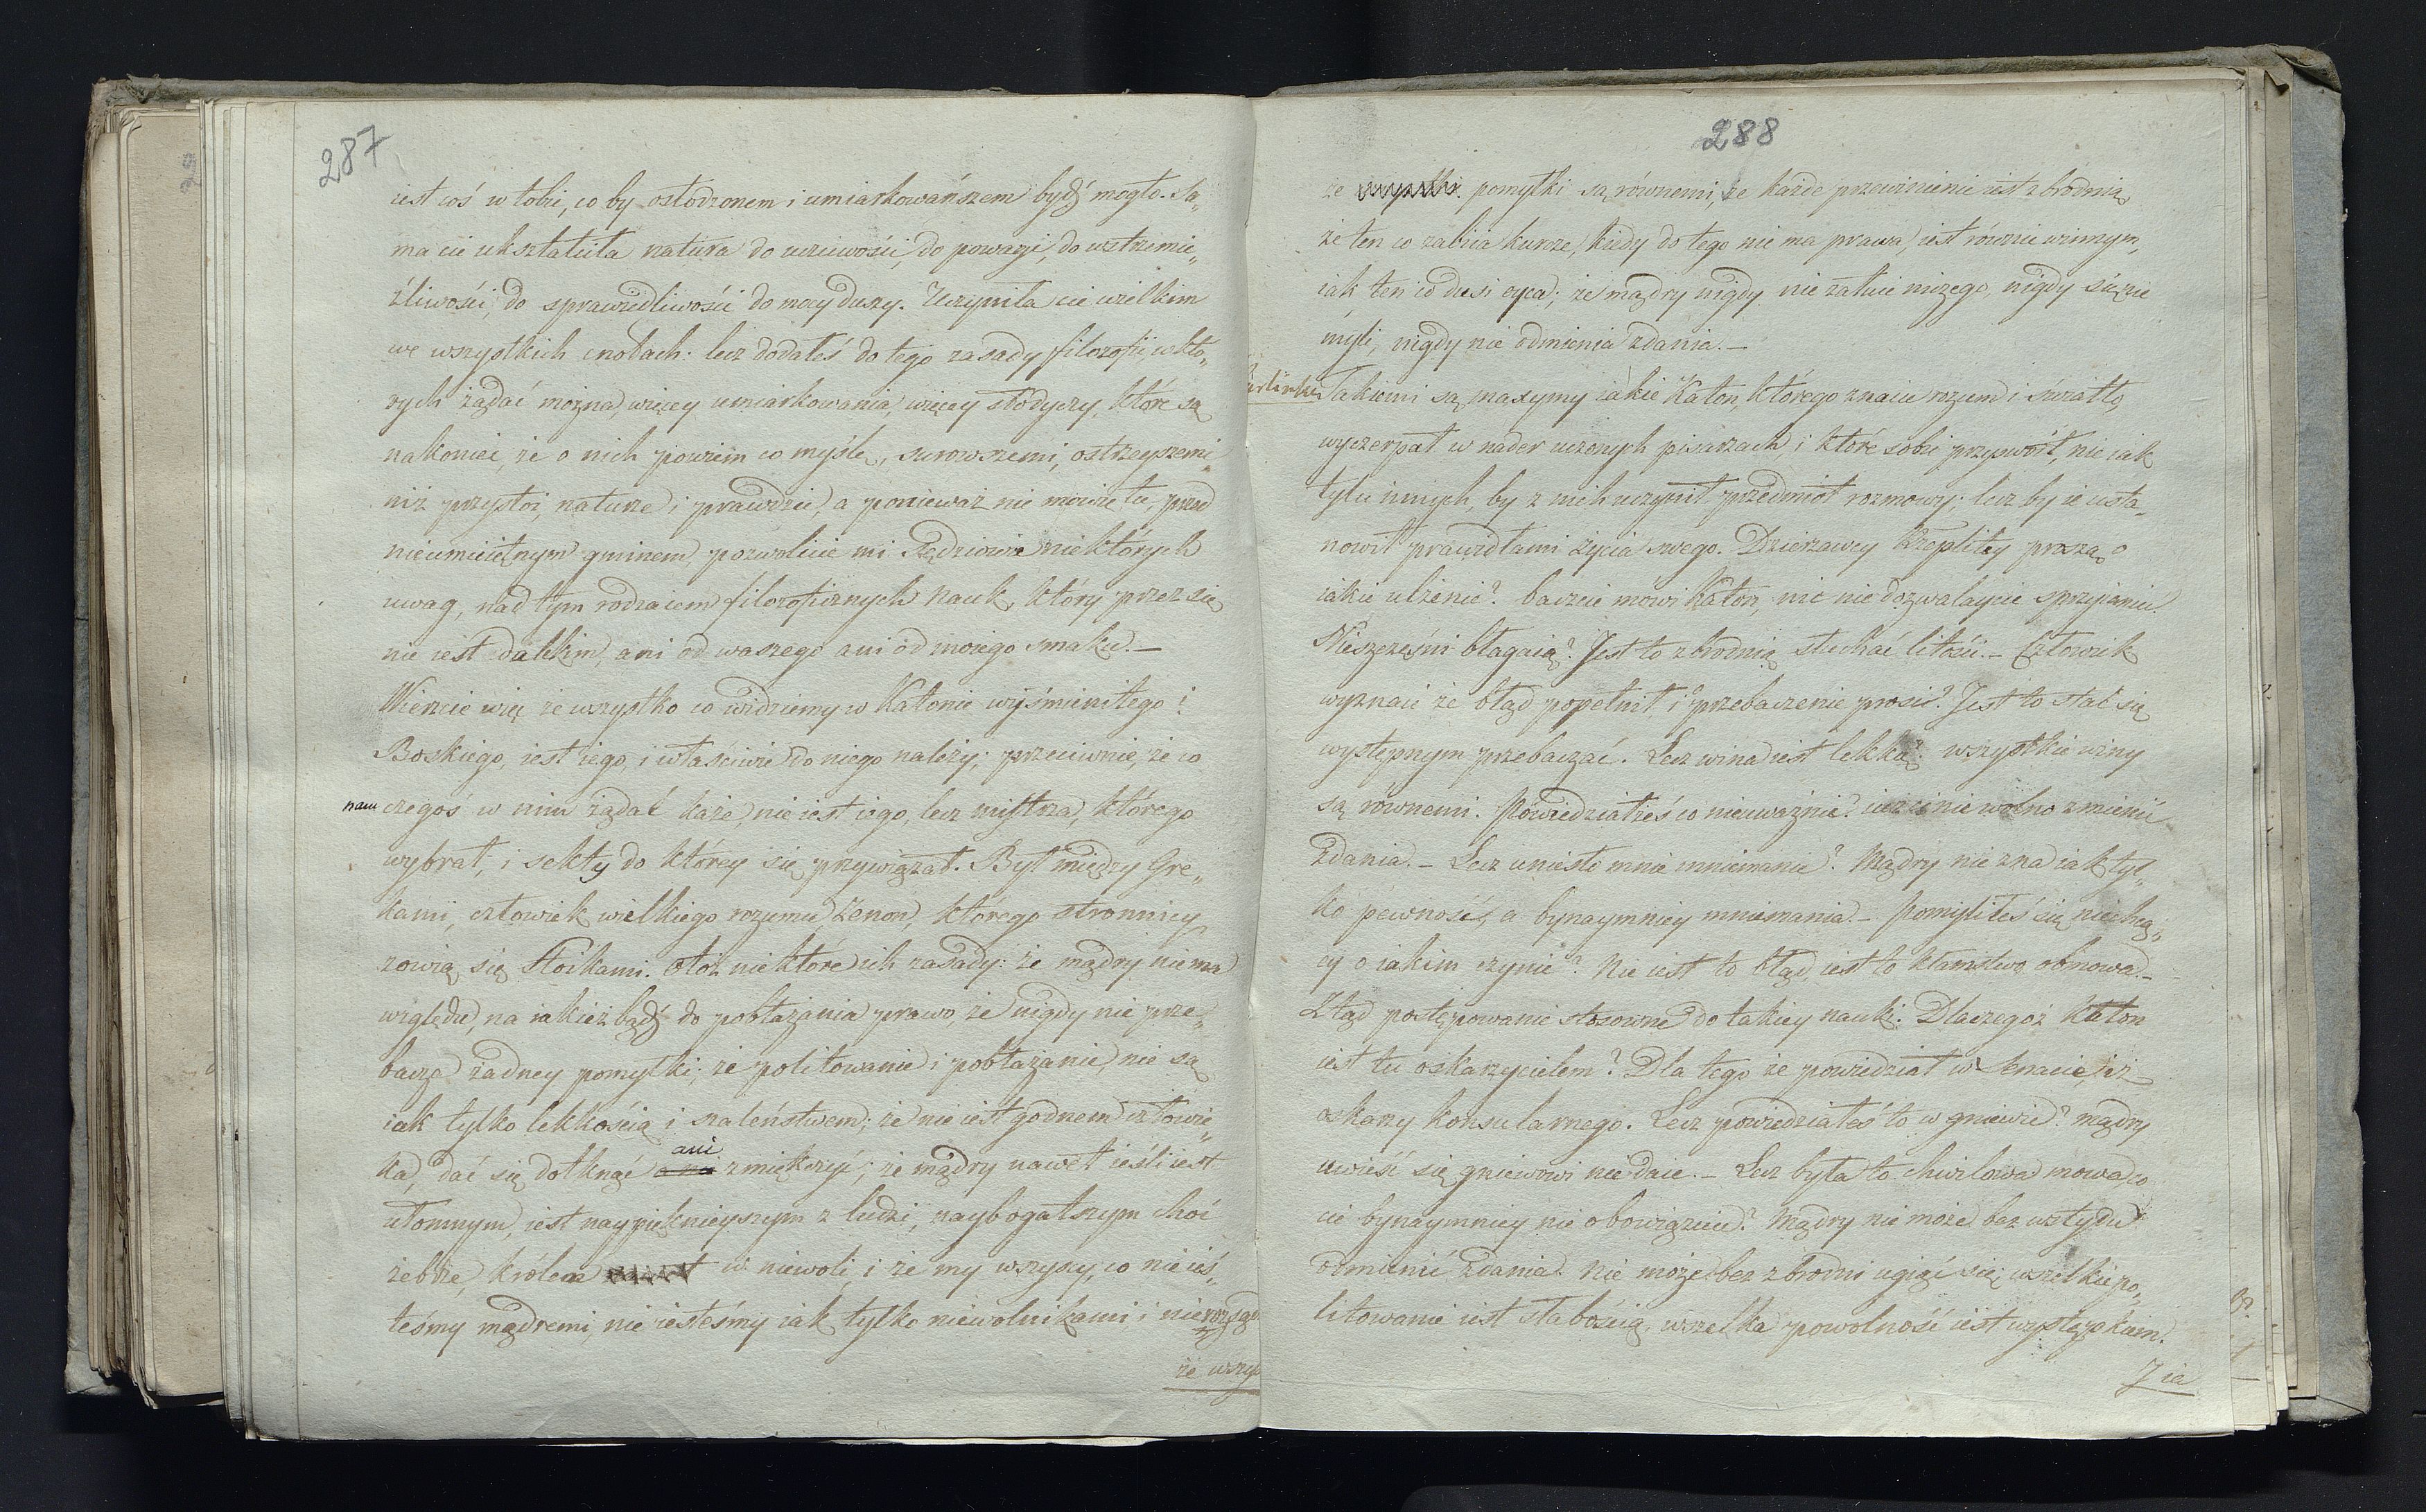 287
iest coś w tobie, co by osłodzonem i umiarkowańszem bydź mogło. Sa„
ma cie ukształciła natura do uczciwości, do powagi, do wstrzemie„
źliwości, do sprawiedliwości do mocy duszy. Uczyniła cie wielkim
we wszystkich cnotach: lecz dodałeś do tego zasady filozofii, w któ„
rych żądać można, więcey umiarkowania, więcey słodyczy, które są
nakoniec, że o nich powiem co myśle, surowszemi, ostrzeyszemi
niż przystoi, naturze i prawdzie, a ponieważ nie mówię tu, przed
nieumieiętnym gminem, pozwolicie mi Sędziowie niektórych
uwag, nad tym rodzaiem filozoficznych nauk, który przez się
nie iest dalekim, ani od waszego ani od moiego smaku.—
Wierzcie więc że wszystko co widziemy w Katonie wyśmienitego i
Boskiego, iest iego, i właściwie do niego należy; przeciwnie, że co
nam czegoś w nim żądać każe, nie iest iego, lecz mistrza, którego
wybrał, i sekty do którey się przywiązał. Był między Gre„
kami, człowiek wielkiego rozumu, Zenon, którego stronnicy
zowią się Stoikami. Otoż niektóre ich zasady: że mądry nie ma
względu, na iakież bądź do pobłażania prawo, że nigdy nie prze„
bacza żadney pomyłki; że politowanie i pobłażanie, nie są
iak tylko lekkością i szaleństwem; że nie iest godnem człowie„
ka, dać się dotknąć ani zmiękczyć; że mądry nawet ieśli iest
ułomnym, iest naypięknieyszym z ludzi, naybogatszym choć
żebrze, królem w niewoli, i że my wszyscy, co nie ieś„
teśmy mądremi, nie iesteśmy iak tylko niewolnikami i
że wszys
288
że pomyłki są równemi, że każde przewinienie iest zbrodnią
że ten co zabiia kurze, kiedy do tego nie ma prawa, iest równie winnym,
iak ten co dusi oyca; że mądry nigdy nie żałuie niczego, nigdy się nie
myli, nigdy nie odmienia zdania.—
Takiemi są maxymy iakie Katon, którego znacie rozum i światło,
wyczerpał w nader uczonych pisarzach, i które sobie przyswoił, nie iak
tylu innych, by z nich uczynił przedmiot rozmowy; lecz by ie usta„
nowił prawidłami życia swego. Dzierżawcy Rzeplitey proszą o
iakie ulżenie? baczcie mówi Katon, nic nie dozwalaycie sprzyianiu.
Nieszczęśni błagaią? Jest to zbrodnią słuchać litości.— Człowiek
wyznaie że błąd popełnił, i o przebaczenie prosi? Jest to stać się
występnym przebaczać. Lecz wina iest lekką? wszystkie winy
są równemi. Powiedziałżeś co nieuważnie? iuż ci nie wolno zmienić
zdania.— Lecz uniosło mnie mniemanie? Mądry nie zna iak tyl„
ko pewność, a bynaymniey mniemania.— Pomyliłeś się niechcą„
cy o iakim czynie? Nie iest to błąd, iest to kłamstwo obmowa.—
Ztąd postępowanie stosowne do takiey nauki. Dlaczegoż Katon
iest tu oskarżycielem? Dla tego że powiedział w Senacie, iż
oskarży konsularnego. Lecz powiedziałeś to w gniewie? mądry
uwieść się gniewowi nie daie.— Lecz była to chwilowa mowa, co
cie bynaymniey nie obowiązuie? Mądry nie może bez wstydu
odmienić zdania. Nie może bez zbrodni ugiąć się; wszelkie po„
litowanie iest słabością, wszelka powolność iest występkiem.
J ia